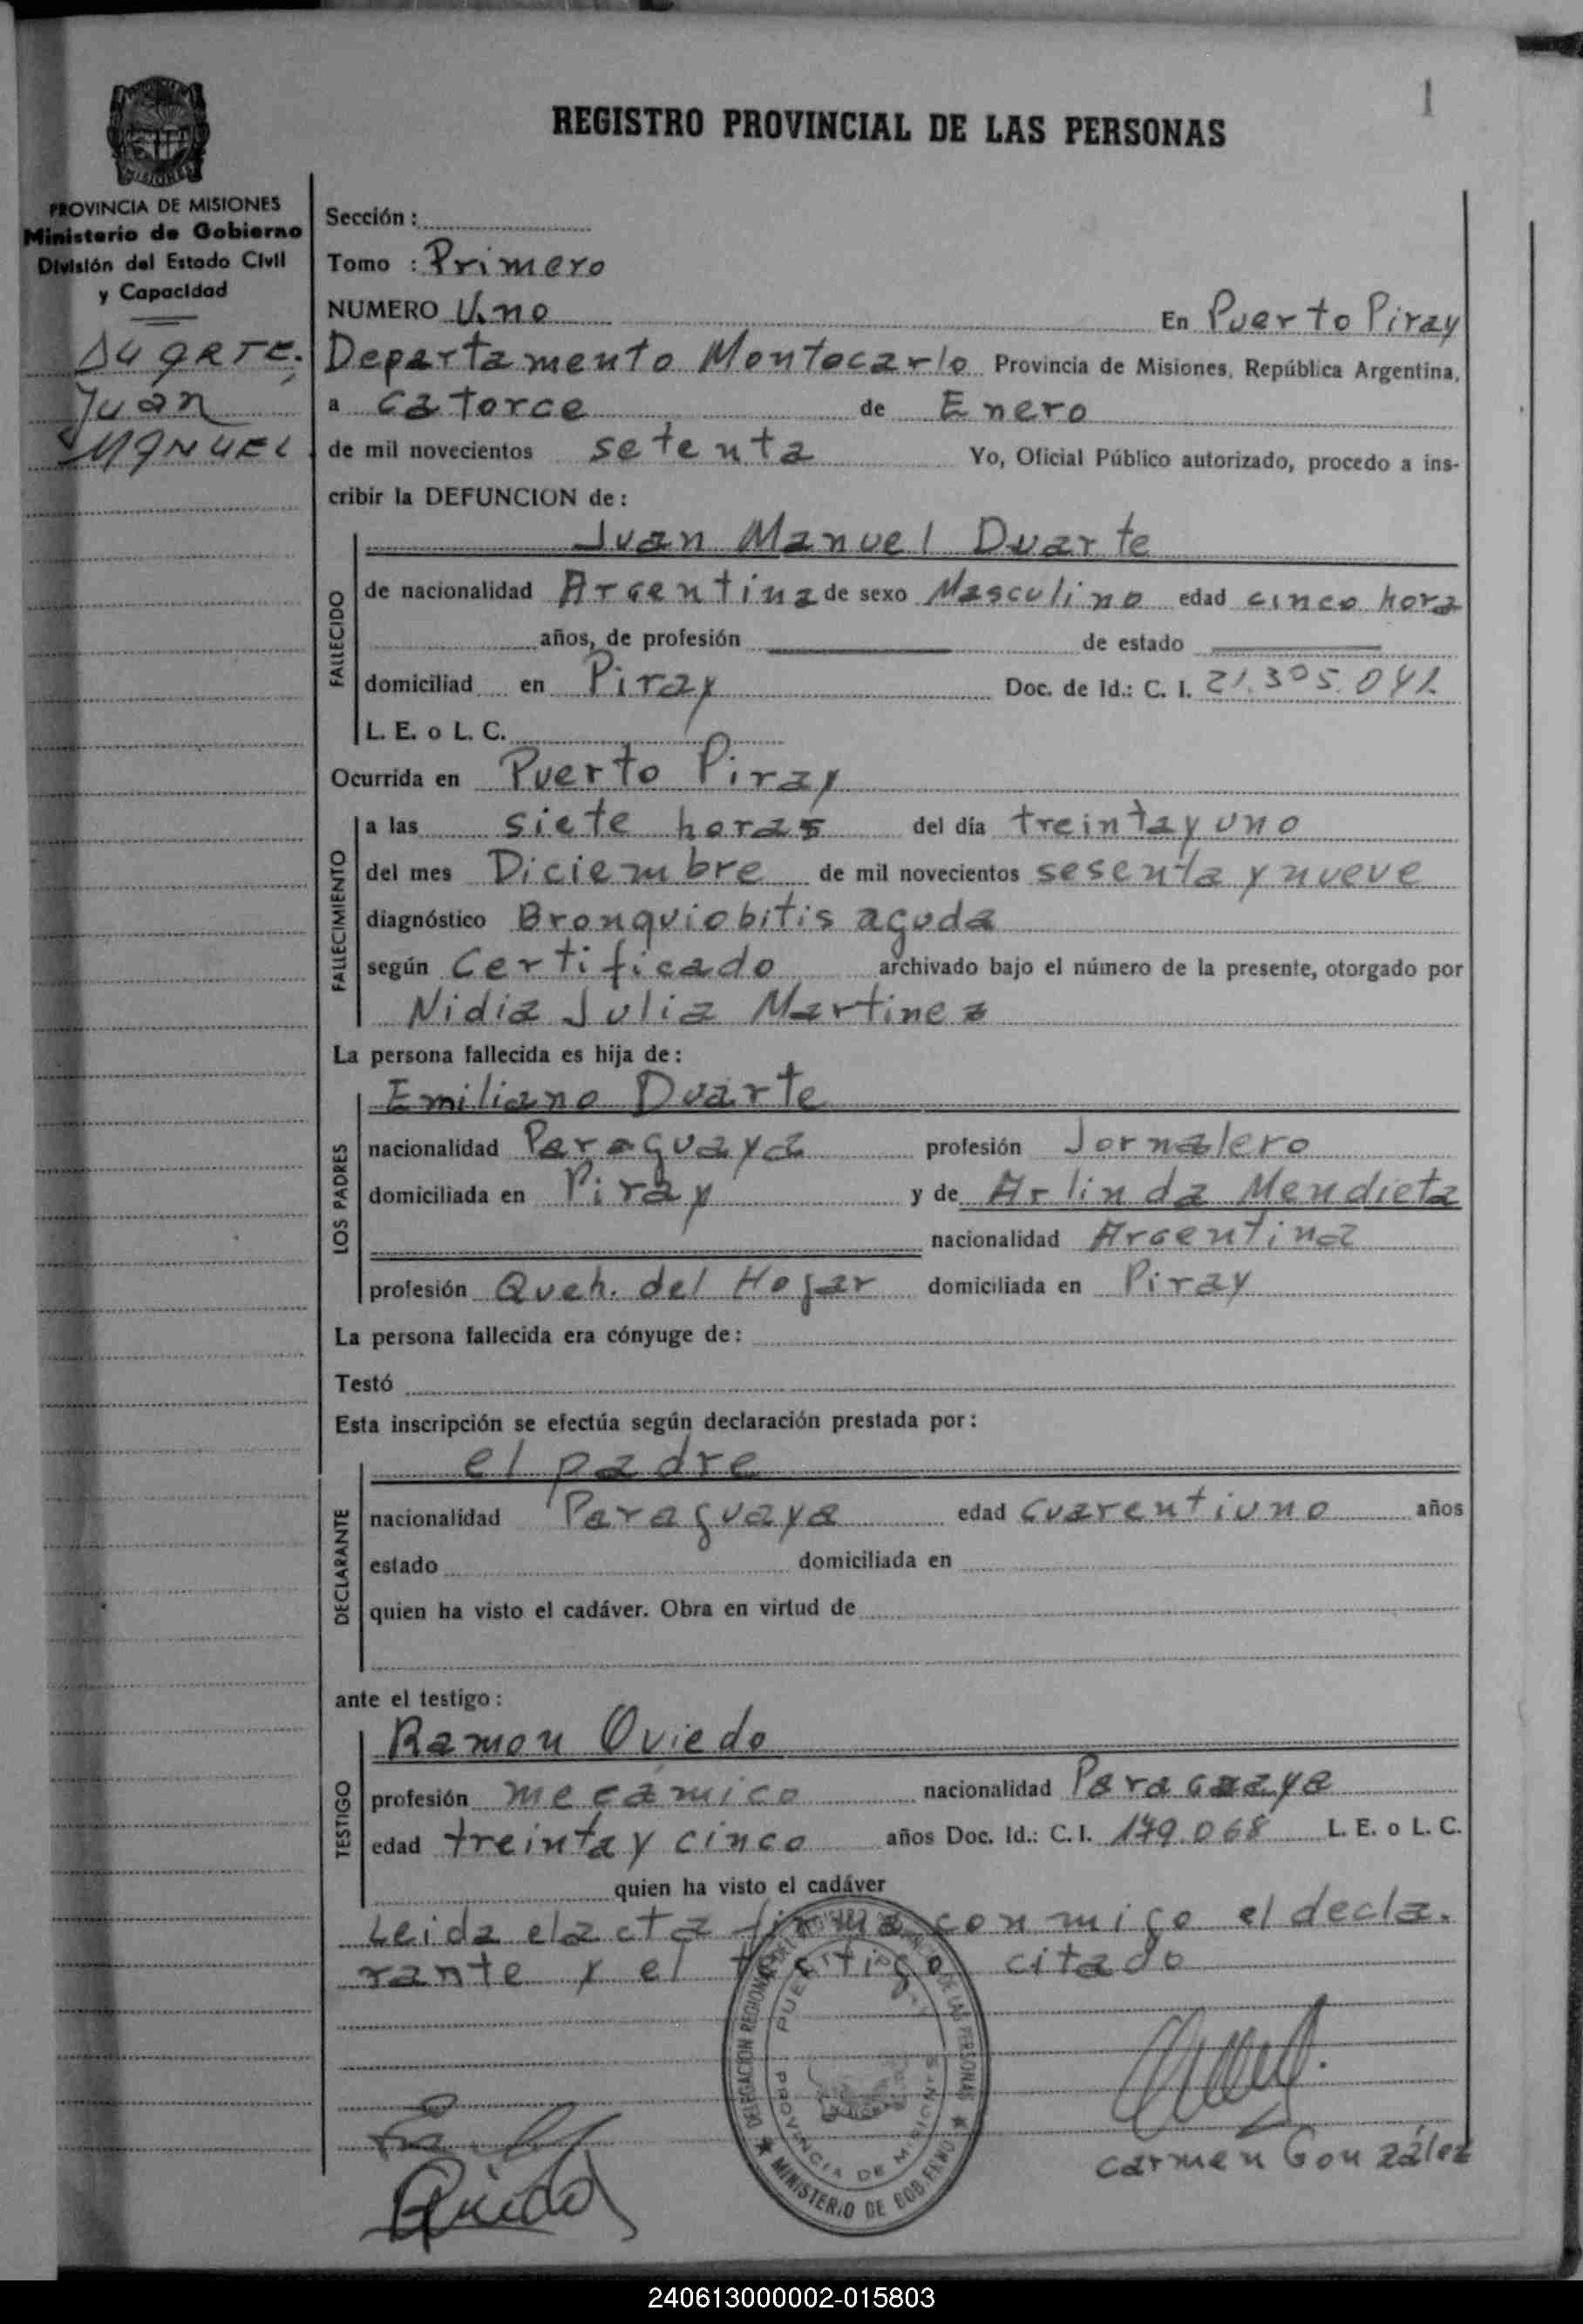 1
REGISTRO PROVINCIAL DE LAS PERSONAS
MISIONES
PROVINCIA DE MISIONES
Ministerio de Gobierno
División del Estado Civil
y Capacidad
DUARTE.
Juan
MANUEL
Sección :
Tomo : Primero
NUMERO Uno En Puerto Piray
Departamento Montecarlo Provincia de Misiones, República Argentina,
a catorce de Enero
de mil novecientos setenta Yo, Oficial Público autorizado, procedo a ins-
cribir la DEFUNCION de :
Juan Manuel Duarte
FALLECIDO
de nacionalidad Argentina de sexo Masculino edad cinco hora
años, de profesión de estado
domiciliad en Piray Doc. de Id.: C. I. 21.305.041
L. E. o L. C.
Ocurrida en Puerto Piray
FALLECIMIENTO
a las siete horas del día treinta y uno
del mes Diciembre de mil novecientos sesenta y nueve
diagnóstico Bronquiobitis aguda
según Certificado archivado bajo el número de la presente, otorgado por
Nidia Julia Martinez
La persona fallecida es hija de :
LOS PADRES
Emiliano Duarte
nacionalidad Paraguaya profesión Jornalero
domiciliada en Piray y de Arlinda Mendieta
nacionalidad Argentina
profesión Queh. del Hogar domiciliada en Piray
La persona fallecida era cónyuge de :
Testó
Esta inscripción se efectúa según declaración prestada por :
DECLARANTE
el padre
nacionalidad Paraguaya edad Cuarentiuno años
estado domiciliada en
quien ha visto el cadáver. Obra en virtud de
ante el testigo :
TESTIGO
Ramon Oviedo
profesión mecámico nacionalidad Paraguaya
edad treinta y cinco años Doc. Id.: C. I. 179.068 L. E. o L. C.
quien ha visto el cadáver
Leida el acta firma conmigo el decla.
rante y el testigo citado
DELEGACION REGIONAL DE LAS PERSONAS
PROVINCIA DE MISIONES
MINISTERIO DE GOBIERNO
Carmen González
240613000002-015803